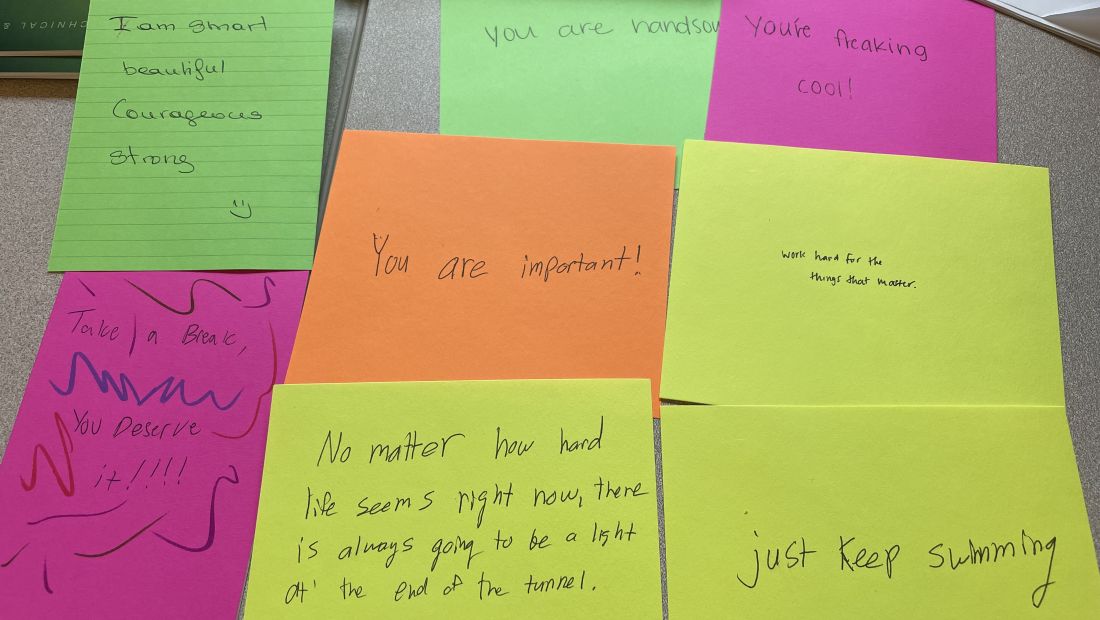 CHNICAL &
I am smart
beautiful
Courageous
strong
You are
You're freaking
cool!
You are important!
work hard for the
things that matter.
Take a Break,
You Deserve
it!!!!
No matter how hard
life seems right now, there
is always going to be a light
at the end of the tunnel.
just keep swimming